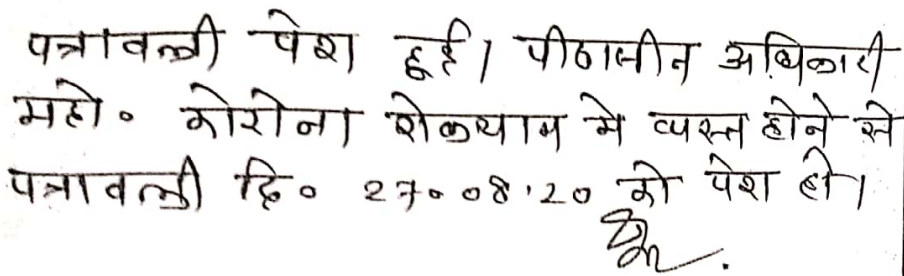 पत्रावली पेश हुई। पीठासीन अधिकारी
महो० कोरोना रोकथाम मे व्यस्त होने से
पत्रावली दि० 27.08.20 को पेश हो।